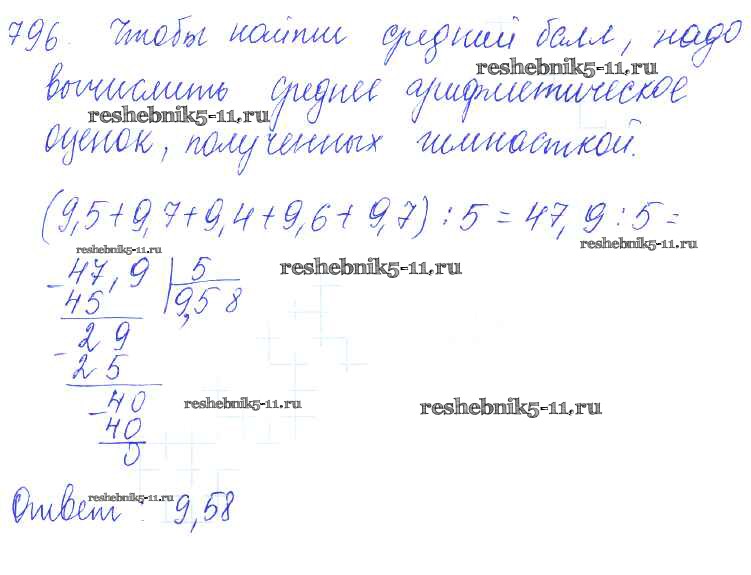 796. Чтобы найти средний балл, надо
reshebnik5-11.ru
вычислить среднее арифметическое
reshebnik5-11.ru
оценок, полученных гимнасткой.
(9,5+9,7+9,4+9,6+9,7):5=47,9:5=
reshebnik5-11.ru reshebnik5-11.ru
reshebnik5-11.ru
- 47,9 | 5
45 9,58
- 29
25
- 40
40
0
reshebnik5-11.ru reshebnik5-11.ru
reshebnik5-11.ru
Ответ: 9,58